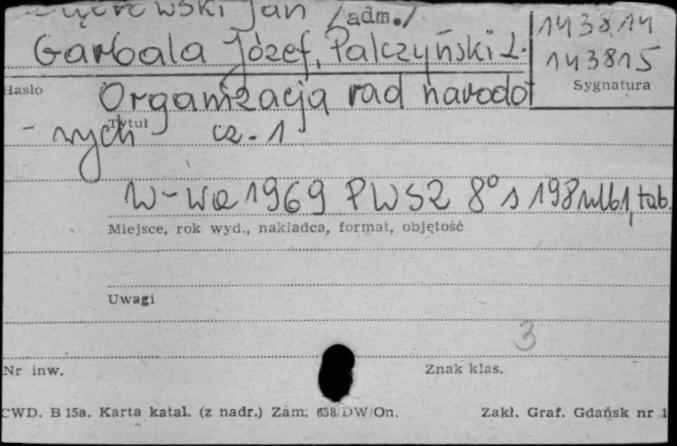 Jan /adm./
Garbala Józef, Palczyński L.
143814
143815
Sygnatura
Hasło
Organizacja rad narodo
Tytuł
- wych cz. 1
W-wa 1969 PWSZ 8° s 198 nlb1, tab.
Miejsce, rok wyd., nakładca, format, objętość
Uwagi
3
Nr inw.
Znak klas.
CWD. B 15a. Karta katal. (z nadr.) Zam. 658/DW/On.
Zakł. Graf. Gdańsk nr 1